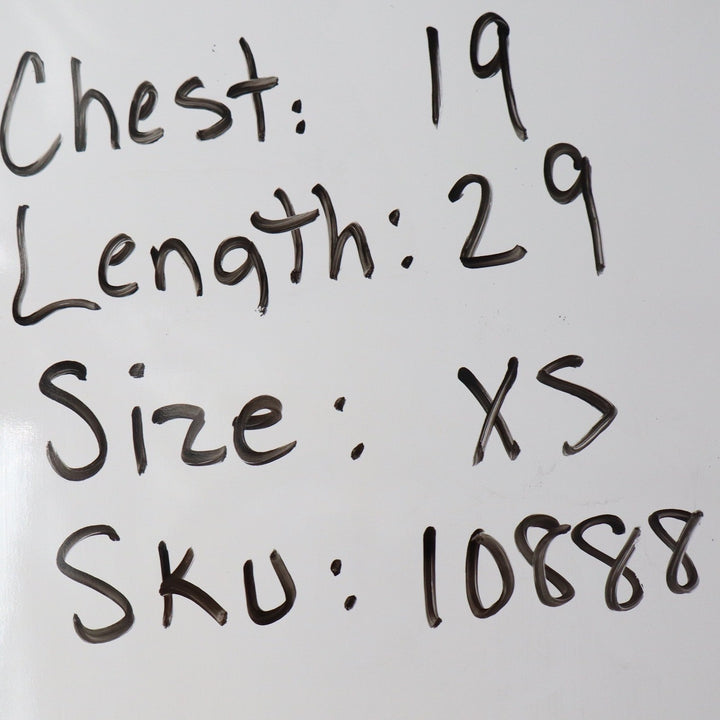 Chest: 19
Length: 29
Size: XS
SKU: 10888